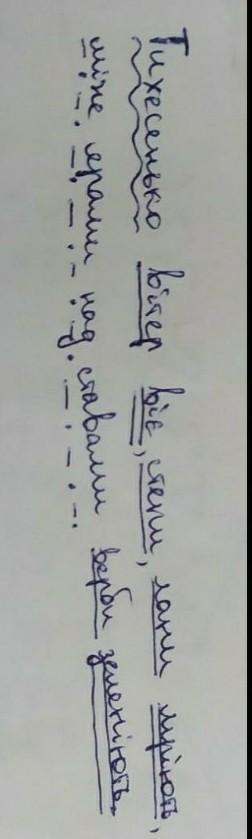 Тихесенько вітер віє, степи, лани мріють,
між ярами над ставами верби зеленіють.